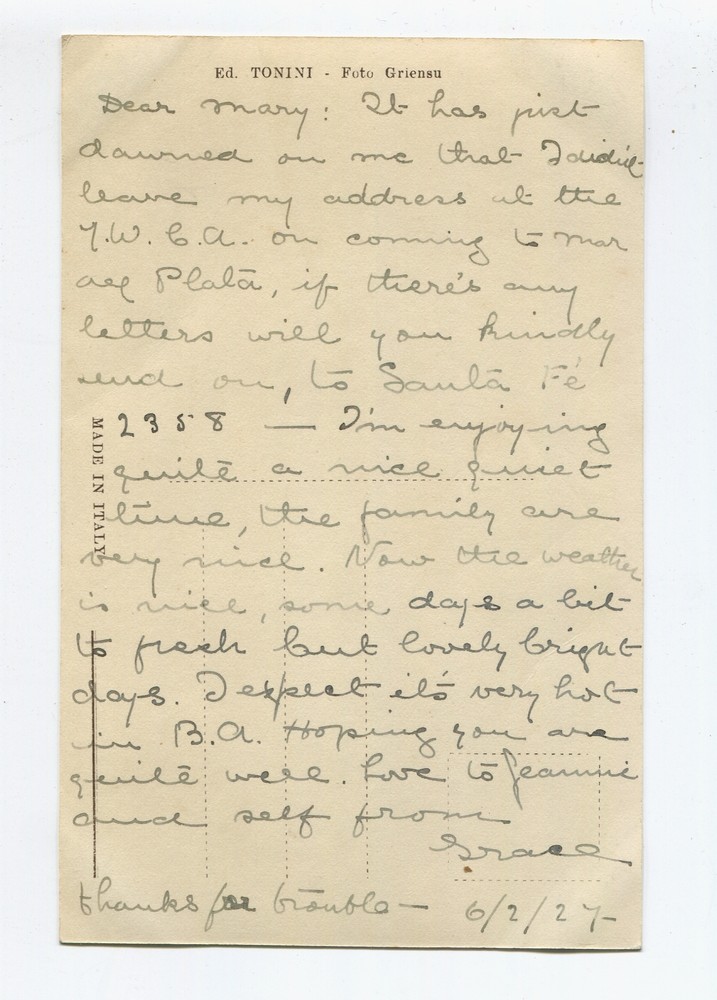 Ed. TONINI - Foto Griensu
Dear Mary: It has just
dawned on me that I didn't
leave my address at the
Y.W.C.A. on coming to Mar
del Plata, if there's any
letters will you kindly
send on, to Santa Fé
2358 — I'm enjoying
quite a nice quiet
time, the family are
very nice. Now the weather
is nice, some days a bit
to fresh but lovely bright
days. I expect it's very hot
in B.A. Hoping you are
quite well. Love to Jeannie
and self from
Grace
thanks for trouble — 6/2/27-
MADE IN ITALY